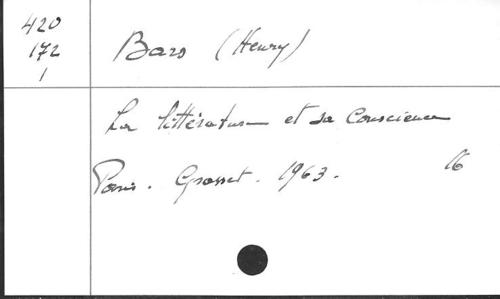 420
172
1
Bars (Henry)
La littérature et sa conscience
Paris. Grasset. 1963. 16